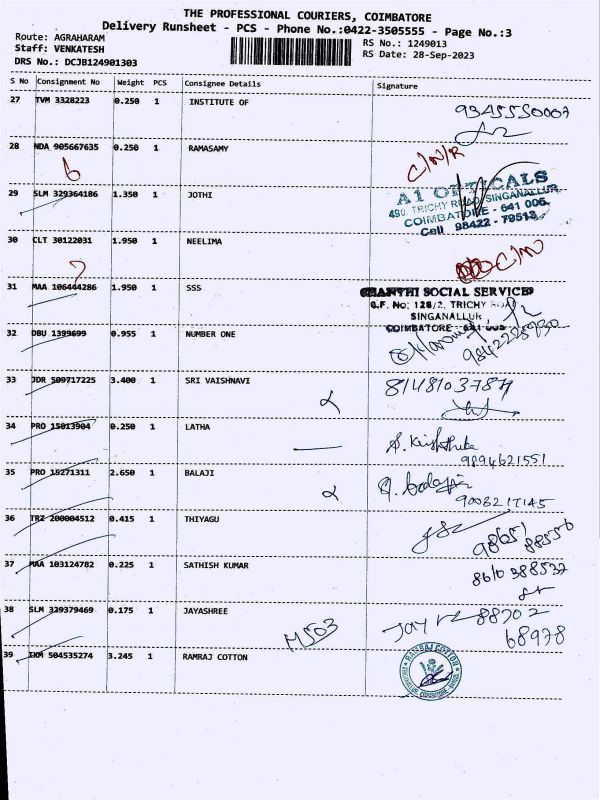 THE PROFESSIONAL COURIERS, COIMBATORE
Delivery Runsheet - PCS - Phone No.:0422-3505555 - Page No.:3
Route: AGRAHARAM
Staff: VENKATESH
DRS No.: DCJB124901303
RS No.: 1249013
RS Date: 28-Sep-2023
S No Consignment No Weight PCS Consignee Details Signature
27 TVM 3328223 0.250 1 INSTITUTE OF
28 NDA 905667635 0.250 1 RAMASAMY C/N/R
6
29 SLM 329364186 1.350 1 JOTHI
A1 OPTICALS
490, TRICHY ROAD, SINGANALLUR,
COIMBATORE - 641 005.
Cell 98422 - 79512
30 CLT 30122031 1.950 1 NEELIMA
C/N
31 MAA 106444286 1.950 1 SSS
SHANTHI SOCIAL SERVICES
G.F. No: 128/2, TRICHY ROAD
SINGANALLUR
COIMBATORE - 641 005
32 DBU 1399699 0.955 1 NUMBER ONE
33 JDR 509717225 3.400 1 SRI VAISHNAVI
34 PRO 15013904 0.250 1 LATHA
9894621551
35 PRO 15271311 2.650 1 BALAJI
36 TRZ 200004512 0.415 1 THIYAGU
98651
88556
37 MAA 103124782 0.225 1 SATHISH KUMAR 8610388537
38 SLM 329379469 0.175 1 JAYASHREE
88702
68978
39 IXM 504535274 3.245 1 RAMRAJ COTTON
RAMRAJ COTTON